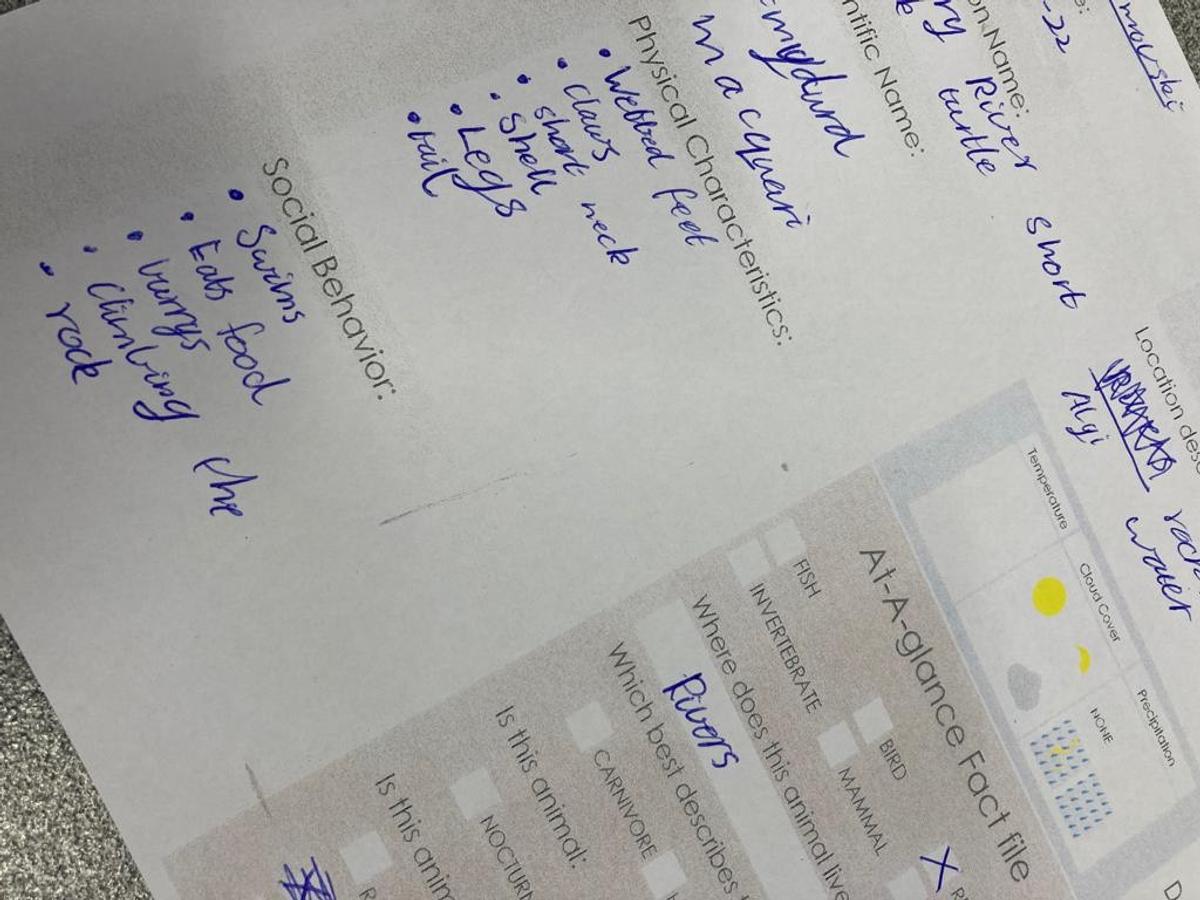 mowski
-22
on Name:
River short
turtle
ntific Name:
macquari
Physical Characteristics:
• Webbed feet
• claws
• short neck
• Shell
• Legs
• tail
Social Behavior:
• Swims
• Eats food
• burrys
• Climbing the
• rock
Location des
rock
Algi water
Temperature
Cloud Cover
Precipitation
NONE
At-A-glance Fact file
FISH
BIRD
X
INVERTEBRATE
MAMMAL
Where does this animal live
Rivers
Which best describes
CARNIVORE
Is this animal:
NOCTURN
Is this anim